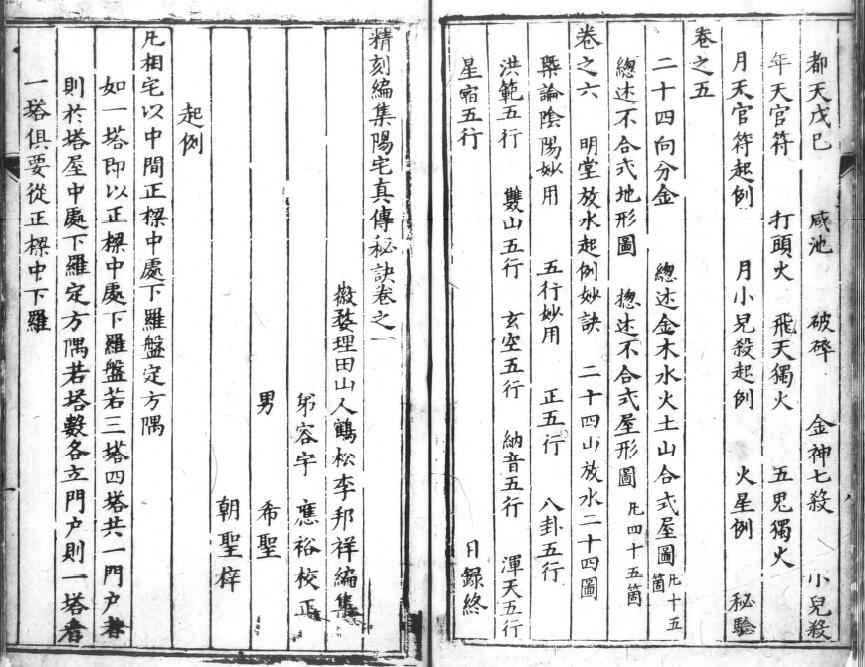 都天戊巳 咸池 破碎 金神七殺 小兒殺
年天官符 打頭火 飛天獨火 五鬼獨火
月天官符起例 月小兒殺起例 火星例 秘驗
卷之五
二十四向分金 總述金木水火土山合式屋圖凡十五箇
總述不合式地形圖 揔述不合式屋形圖凡四十五箇
卷之六 明堂放水起例妙訣 二十四山放水二十四圖
槩論陰陽妙用 五行妙用 正五行 八卦五行
洪範五行 雙山五行 玄空五行 納音五行 渾天五行
星宿五行 目錄終
精刻編集陽宅真傳秘訣卷之一
徽婺理田山人鶴松李邦祥編集
弟容宇 應裕校正
男 希聖
朝聖梓
凡相宅以中間正樑中處下羅盤定方隅
起例
如一塔即以正樑中處下羅盤若三塔四塔共一門户者
則於塔屋中處下羅定方隅若塔數各立門户則一塔者
一塔俱要從正樑中下羅